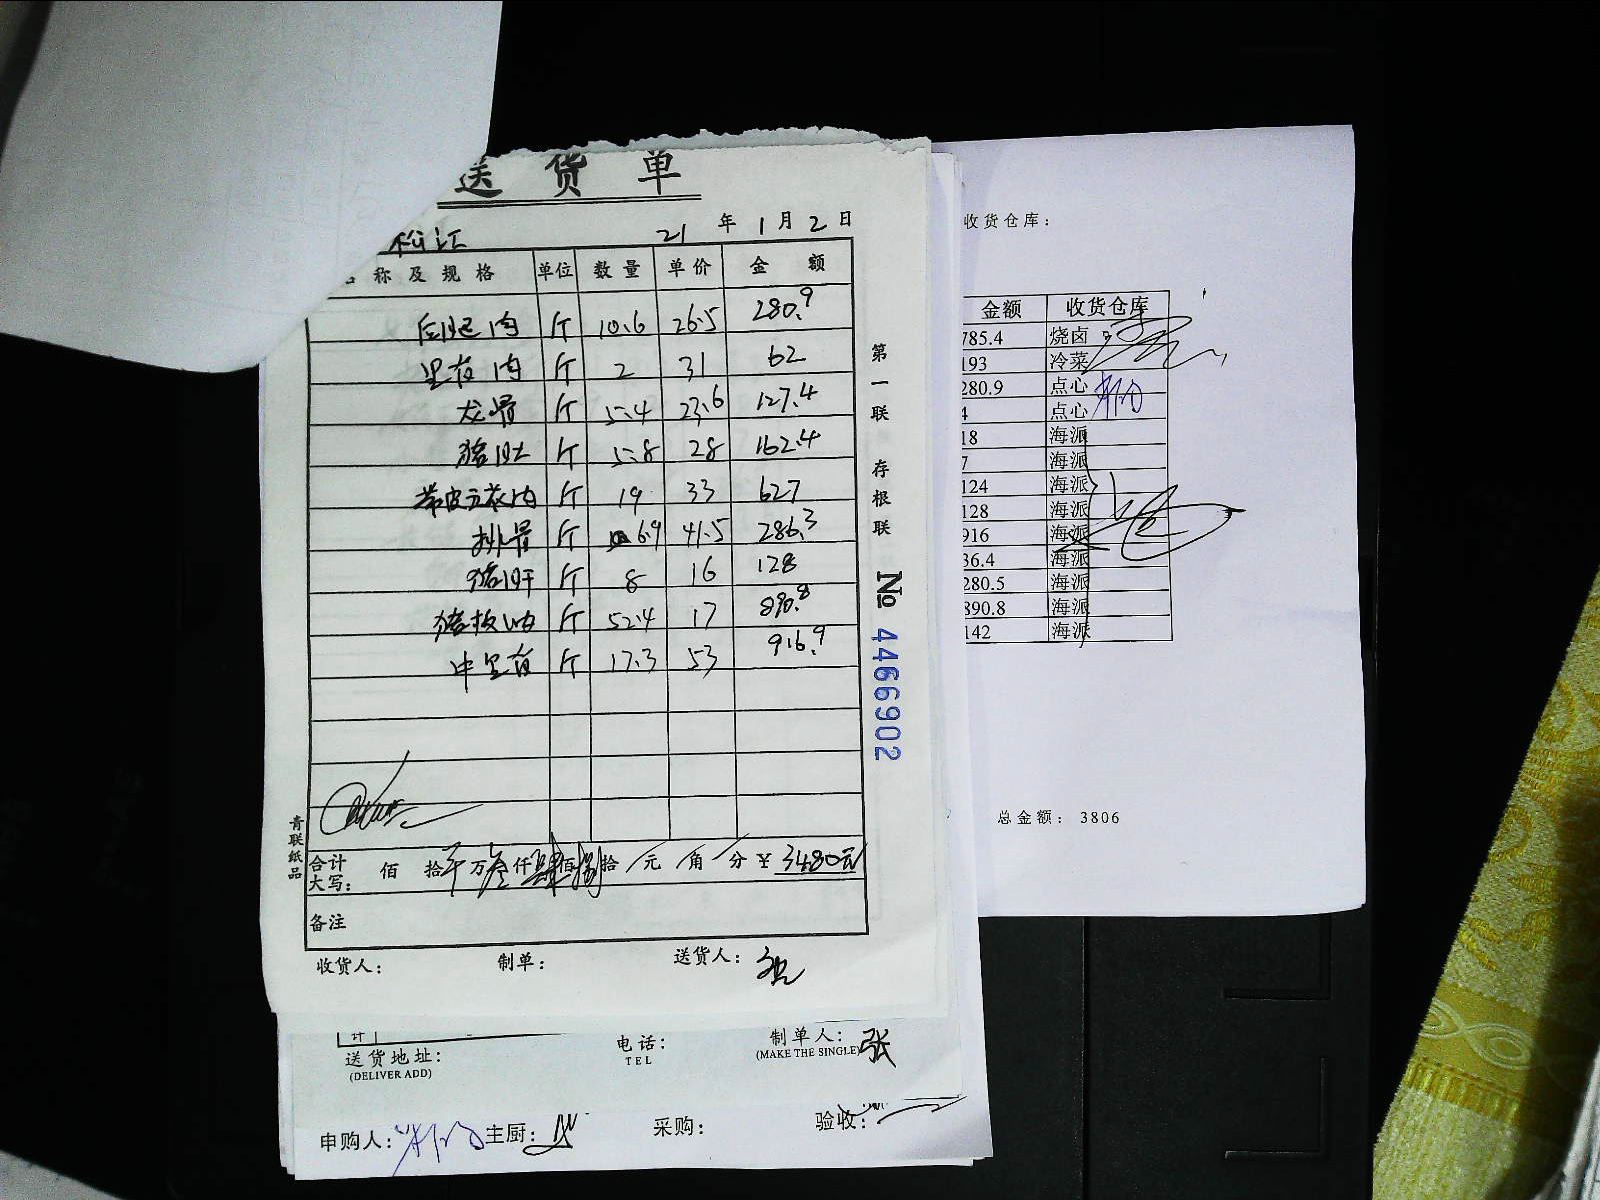 送 货 单
松江
21 年 1 月 2 日
名 称 及 规 格 单位 数量 单价 金 额
后腿肉 斤 10.6 26.5 280.9
里脊肉 斤 2 31 62
龙骨 斤 5.4 23.6 127.4
猪肚 斤 5.8 28 162.4
带皮五花肉 斤 19 33 627
排骨 斤 6.9 41.5 286.3
猪肝 斤 8 16 128
猪板油 斤 52.4 17 890.8
中里脊 斤 17.3 53 916.9
合计大写: 佰 拾 万叁仟肆佰捌拾 元 角 分 ¥ 3480元
备注
收货人: 制单: 送货人:
第一联 存根联
No 4466902
青联纸品
计
送货地址: 电话: 制单人: 张
(DELIVER ADD) TEL (MAKE THE SINGLE)
申购人: 主厨: 采购: 验收:
收货仓库:
金额 收货仓库
785.4 烧卤
193 冷菜
280.9 点心
4 点心
18 海派
7 海派
124 海派
128 海派
916 海派
36.4 海派
280.5 海派
890.8 海派
142 海派
总金额: 3806